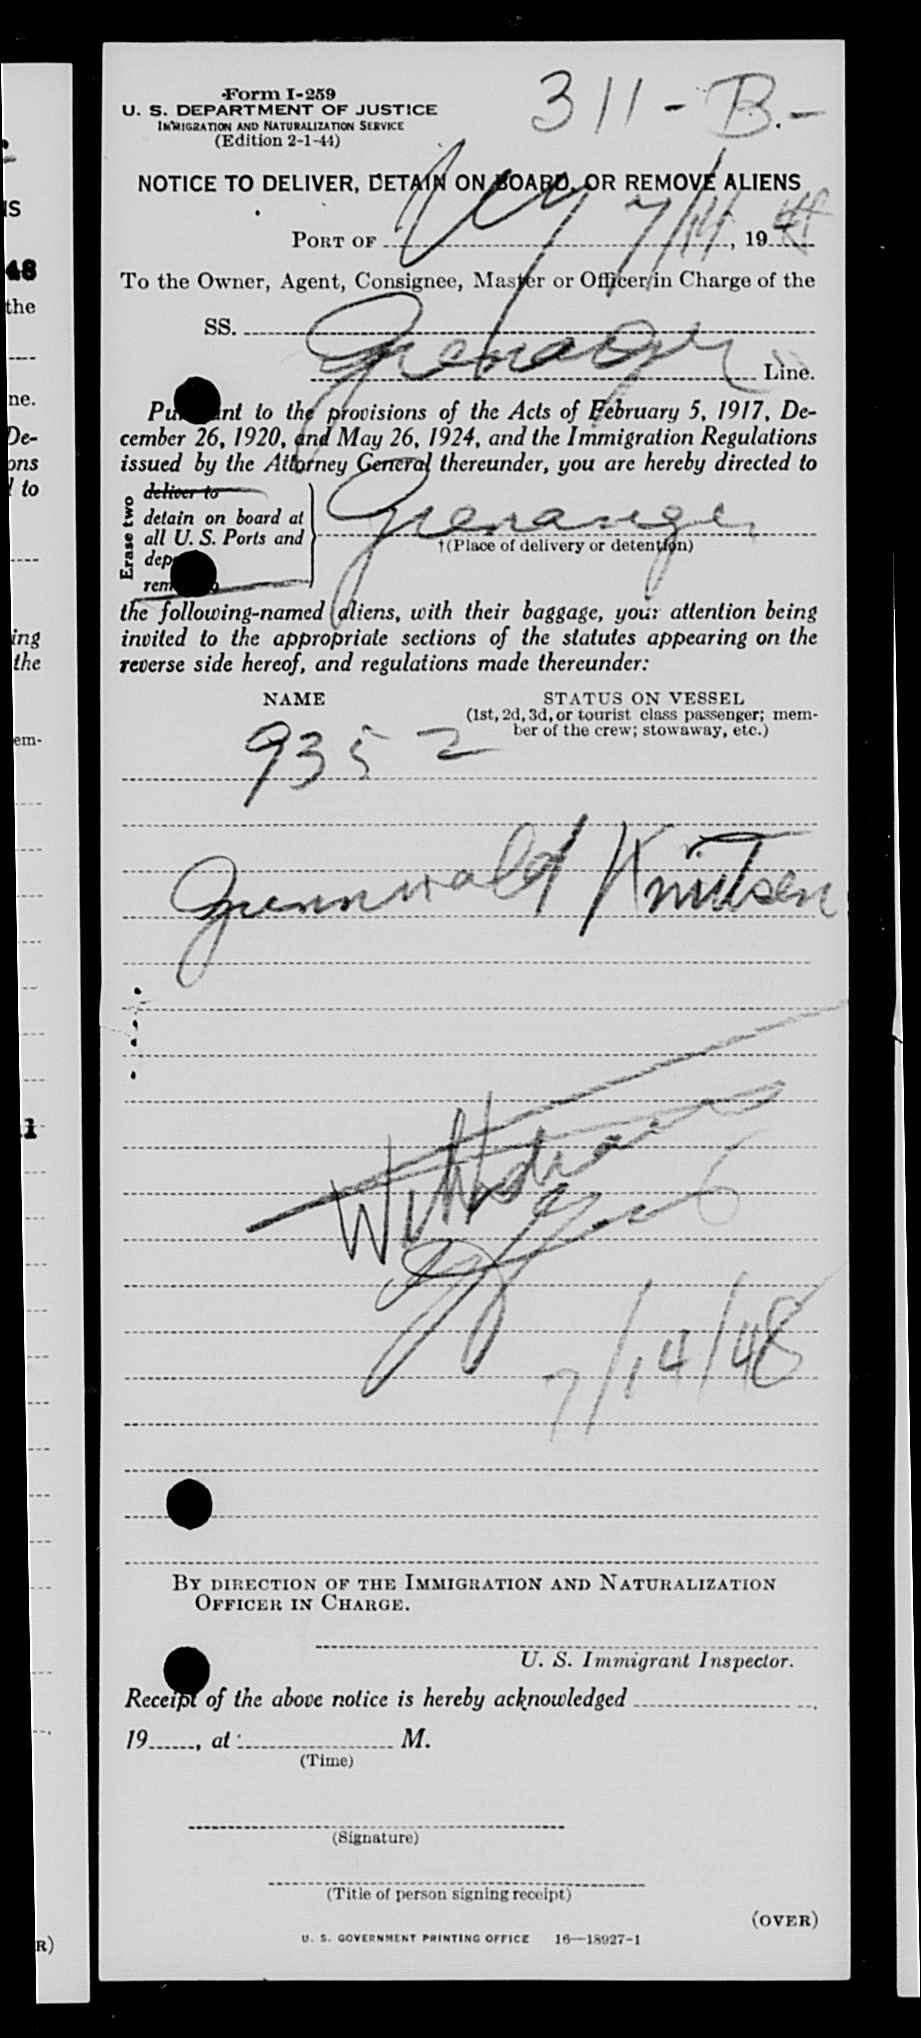 Form I-259
311-B.-
U. S. DEPARTMENT OF JUSTICE
IMMIGRATION AND NATURALIZATION SERVICE
(Edition 2-1-44)
NOTICE TO DELIVER, DETAIN ON BOARD, OR REMOVE ALIENS
PORT OF NY 7/14, 1948
To the Owner, Agent, Consignee, Master or Officer in Charge of the
SS. Grenager
Line.
Pu nt to the provisions of the Acts of February 5, 1917, De-
cember 26, 1920, and May 26, 1924, and the Immigration Regulations
issued by the Attorney General thereunder, you are hereby directed to
Erase two
deliver to
detain on board at
all U. S. Ports and
dep
rem
Grenanger
†(Place of delivery or detention)
the following-named aliens, with their baggage, your attention being
invited to the appropriate sections of the statutes appearing on the
reverse side hereof, and regulations made thereunder:
NAME STATUS ON VESSEL
(1st, 2d, 3d, or tourist class passenger; mem-
ber of the crew; stowaway, etc.)
9352
Grunnwald Knutsen
Withdrawn
7/14/48
BY DIRECTION OF THE IMMIGRATION AND NATURALIZATION
OFFICER IN CHARGE.
U. S. Immigrant Inspector.
Receipt of the above notice is hereby acknowledged
19, at M.
(Time)
(Signature)
(Title of person signing receipt)
(OVER)
U. S. GOVERNMENT PRINTING OFFICE 16—18927-1